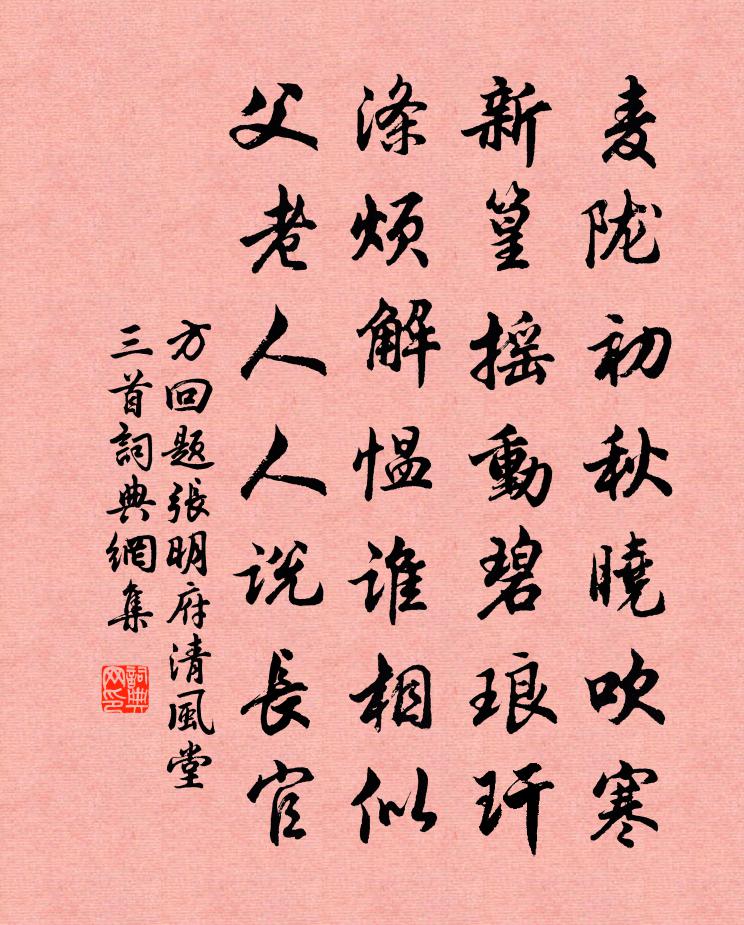 麦陇初秋曉吹寒
新篁摇動碧琅玕
滌烦解愠谁相似
父老人人说長官
方回题張明府清風堂
三首詞典網集
詞典
网印